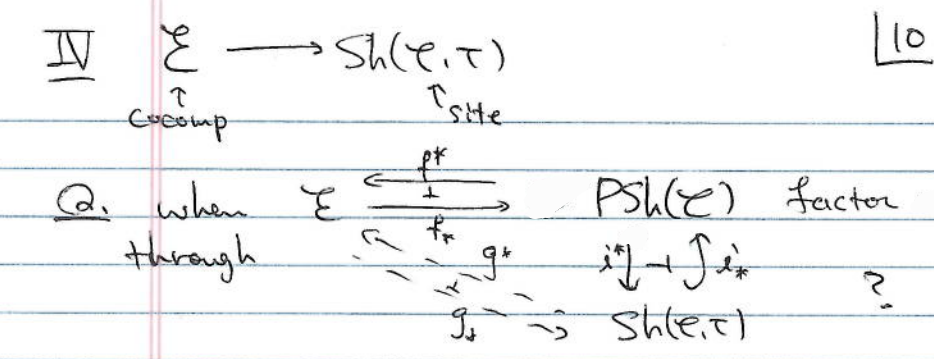 IV ℰ ⟶ Sh(𝒞, τ) 10
↑ ↑
cocomp site
f*
Q. when ℰ ⇄ PSh(𝒞) factor
⊥
through f_* g* i*↓ ⊣ ↑i_* ?
g_* Sh(𝒞, τ)